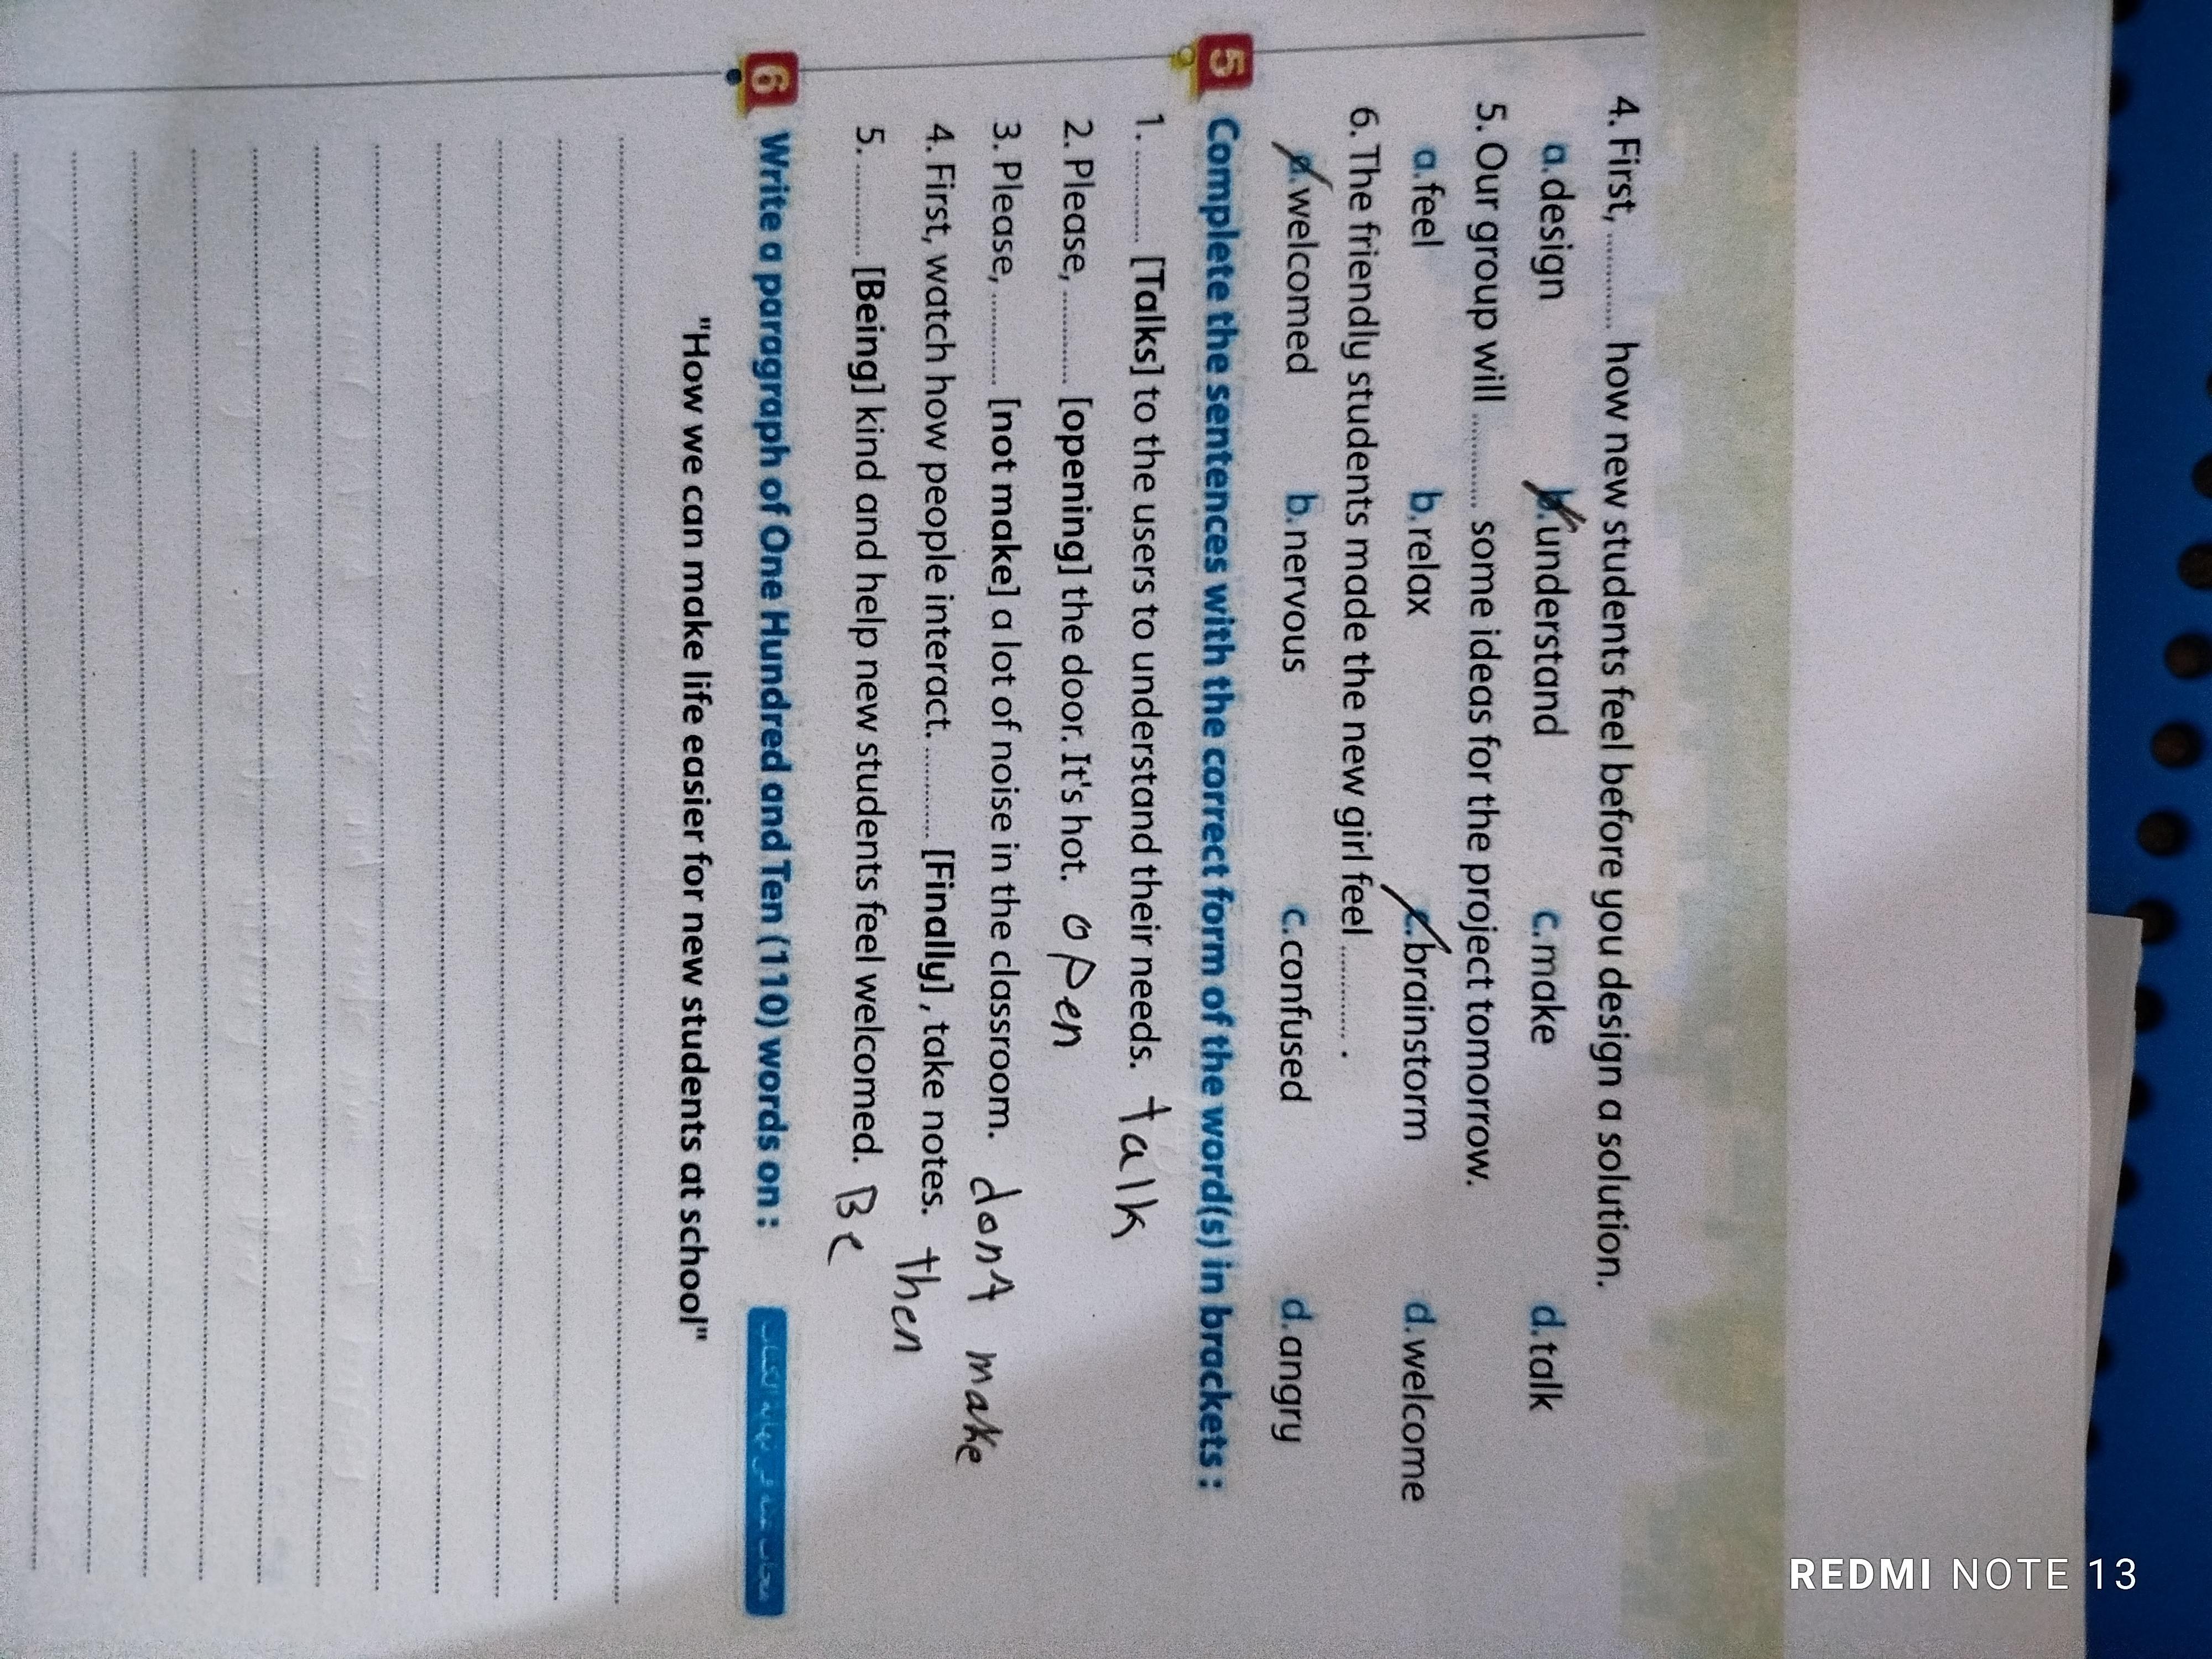 4. First, ............ how new students feel before you design a solution.
a. design b. understand c. make d. talk
5. Our group will ............ some ideas for the project tomorrow.
a. feel b. relax c. brainstorm d. welcome
6. The friendly students made the new girl feel ............ .
a. welcomed b. nervous c. confused d. angry
5 Complete the sentences with the correct form of the word(s) in brackets :
1. ............ [Talks] to the users to understand their needs. talk
2. Please, ............ [opening] the door. It's hot. open
3. Please, ............ [not make] a lot of noise in the classroom. dont make
4. First, watch how people interact. ............ [Finally] , take notes. then
5. ............ [Being] kind and help new students feel welcomed. Be
6 Write a paragraph of One Hundred and Ten (110) words on :
"How we can make life easier for new students at school"
REDMI NOTE 13